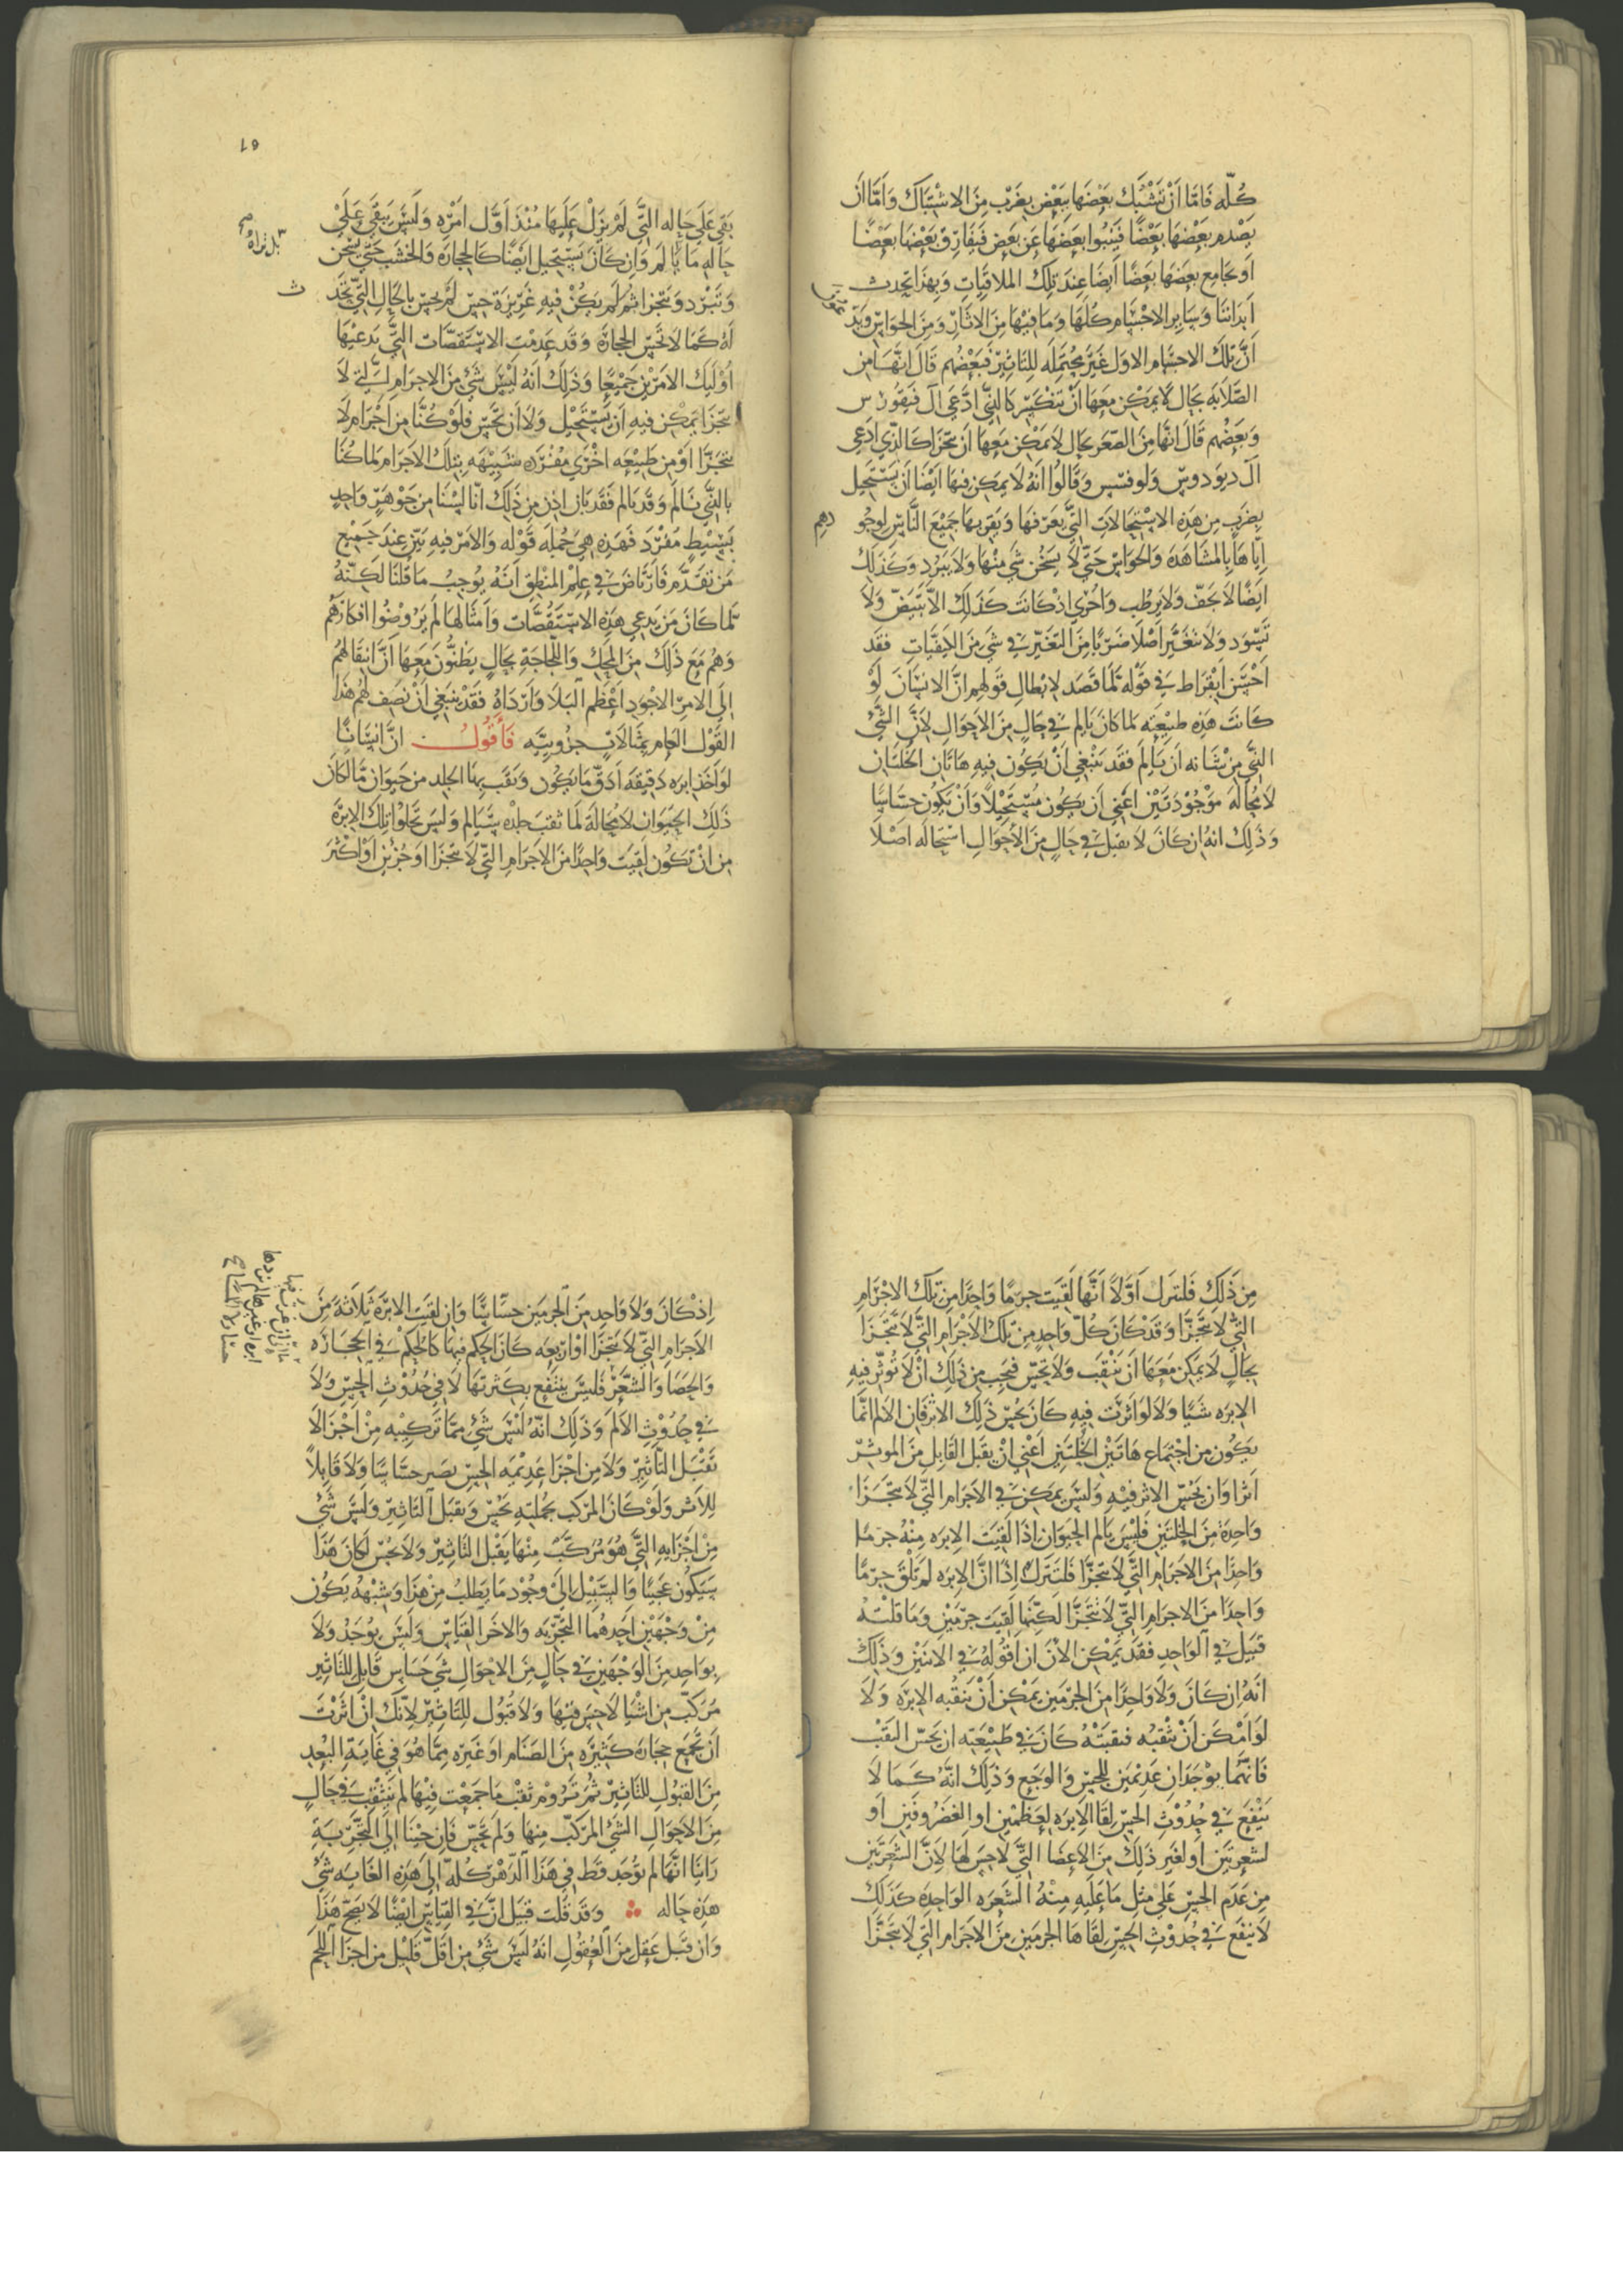 كُلّه فَامَّا اَنْ تَشْتَبك بَعْضَها بِبَعْضٍ بِضَرْبٍ مِنَ الاشْتِبَاكِ وَاَمَّا اَن
يَصْدِم بَعْضهَا بَعْضًا فَيَنْبُوا بَعضهَا عَن بَعضٍ فَيُفَارِقُ بَعْضهَا بَعْضًا
اَو يُجَامِع بَعضهَا بَعضًا اَيضًا عِندَ تِلكَ الملاقَيَاتِ وَبِهَذَا يَحدث
اَبدَاننَا وَسَايِر الاجْسَام كُلهَا وَمَا فيهَا مِنَ الاثَارِ وَمِنَ الحَوَاسِّ
اَنَّ تلكَ الاجسَام الاوَل غَيْر مُحتَمِلَه لِلتَاثِير فَبَعْضُهم قَالَ انّهَا مِن
الصَّلَابَه بحَالٍ لَا يمَكِن مَعَهَا اَنْ تَنكَسِر كَالذّي ادَّعى آل فيقُورُس
وَبَعضُهم قَالَ انّهَا مِنَ الصّغَر بحَالٍ لَا يمَكِن مَعهَا اَن تتَجزا كَالذّي ادَعى
آل ديودوس وَلوقبس وَقَالُوا انَهُ لَا يمَكِن فيهَا اَيْضًا اَن يَسْتَحِيل
بِضَربٍ مِن هَذِه الاسْتِحَالَاتِ التَّي نَعرفهَا وَيقربهَا جَمِيْعَ النَّاس لوجو دهم
اِيّاهَا بِالمشَاهَدَه وَالحَوَاس حَتَّى لَا يَسخُن شَي مِنْهَا وَلَا يَبرُد وَكَذَلكَ
اَيضًا لَا يجفّ وَلَا يَرطُب وَاَحْرَى اِذ كَانَتَ كَذَلِكَ الَّا تَبيَضّ وَلَا
تَسْوَد وَلَا تتغَيَّر اَصْلًا ضَربًا مِنَ التَغَيّر فِي شَي مِنَ الكَيفيَّاتِ فقَد
اَحْسَن اَبُقراط في قوْله لَمَّا قَصَد لاِبْطالِ قَولهم انَّ الانسَان لَوْ
كَانَت هَذِه طبيْعَته لمَا كَانَ يَالم في حَالٍ مِنَ الاَحوَالِ لاِنّ الشَّي
الذّي مِن شَانه اَن يَالم فقَد يَنْبَغي اَنْ يَكُون فيهِ هَاتَان الخلتَان
لَا مُحَاله مَوْجُودَتَين اعَني اَن يَكون مُسْتحيْلًا وَاَنْ يَكوُن حسَاسًا
وَذَلِكَ انهُ اِن كَانَ لَا يقبَل في حَالٍ مِنَ الاَحوَالِ اسْتحَاله اصْلًا
١٥
بَقى عَلَى حَاله التَّي لَمْ يَزلْ عَلَيهَا مُنْذ اَوّل اَمرِه وَليسَ يَبقَى عَلى
حَالهِ مَا يَالَم وَاِن كَانَ يَسْتحِيل اَيضًا كَالحِجَارَة وَالخَشَب حَتّى يَسْخن
وَتَبْرد وَتتجزا ثم لَم يَكُنْ فيهِ غَريْزَة حِسّ لَم يحسّ بِالحَالِ التّي تحَدث
لَه كمَا لَا تحسّ الحِجَارَة وَقَد عَدِمت الاسْتقصّات التَّي يَدعيْهَا
اُوْليكَ الامْريْن جَميْعًا وَذَلكَ اَنهُ لَيْسَ شَيْ مِنَ الاِجرَام التي لَا
تتجزا يمَكن فيهِ اَن يَسْتَحيْل وَلَا اَن تحسّ فلَوْ كُنَّا مِن اَجْرام لَا
تتجَزَّا اَوْ من طَبيْعَه اخْرَى مفْرَده شَبِيْهَه بِتلكَ الاَجرَام لَمَا كُنَا
بِالذّي نَالَم وَقَد نَالم فقَد بَان اِذن مِن ذَلكَ انّا ليْسْنَا من جَوْهَرٍ وَاحِدٍ
بَسِيْطٍ مُفْرَد فَهَذِه هيَ جُمْلَه قَوْله وَالاَمر فيهِ بَيّن عِندَ جَميْع
مَن تقَدّم فَارتَاضَ فِي عِلم المنْطِق اَنهُ يُوجِبُ مَا قلنَا لَكِنّهُ
لَمّا كَانَ مَن يَدعي هَذِه الاسْتقصّات وَاَمثَالهَا لَم يَرُوضُوا افكَارهُم
وَهُم مَعَ ذَلكَ مِنَ المحك وَاللّجَاجَةِ بحَالٍ يَظنُّونَ مَعَهَا اَنّ انتقَالهُم
اِلَى الامرِ الاجْوَد اَعْظم البَلَا وَارْدَاهُ فقَدْ يَنبَغي اَنْ نصَف لهم هَذَا
القَوْل العَام بِمثَالَاتٍ جزويّيَّه فَأقُولُ انّ انسَانًا
لوْ اَخَذ ابره دَقيْقَه اَدَقّ مَا يَكوُن وَنقَب بِهَا الجلد من حيَوانٍ مَا لكَان
ذَلكَ الحيَوان لَا مُحالَة لمَا ثقبَ جلْده سَيَالم وَليسَ تَخلُوا تِلكَ الابرَة
مِن اَنْ تكوُن لَقيَت وَاحِدًا مِنَ الاَجرَام التّي لَا تتجَزا اَوْ جُزيْن اَوْ اَكثَر
مِن ذَلكَ فَلننزل اَوّلًا اَنّهَا لَقيَت جرمًا وَاحِدًا مِن تِلكَ الاجْرَامِ
التّي لَا تتجَزَّا وَقَدْ كَانَ كُلّ وَاحِدٍ مِن تِلكَ الاَجْرَام التَّي لَا تتجَزا
بحَالٍ لَا يمكِن مَعَهَا اَن يَنْقب وَلَا تحسّ فيَجب مِن ذَلكَ اَنْ لَا تُوثّر فيهِ
الابره شَيًا وَلَا لَوْ اَثرَت فيهِ كَانَ يحُسّ ذَلكَ الاثَر فَان الاَلم انّمَا
يَكوُن من اجْتمَاع هَاتَيْن الخلّتَين اَعْني اَنْ يقبَل القَابِل مِنَ الموثّر
اَثرًا وَاَن يحَسّ الاثر فيهِ وَليسَ يمَكن في الاَجرَام التّي لَا تتجَزا
وَاحِدَة مِنَ الخلّتَين فليْسَ يَالم الحيَوان اِذَا لَقيَت الاِبره مِنْهُ جرمًا
وَاحِدًا مِنَ الاَجرَام التَّي لَا تتجزا فَلننزل اِذًا انّ الاِبره لَم تَلْقَ جِرمًا
وَاحِدًا مِنَ الاجرَامِ التيّ لَا تتجَزَّا لَكِنّهَا لَقيَت جِرْمَيْن وَمَا قُلتهُ
قبَيل في الوَاحِد فقَد يمْكِن الاٰنَ ان اَقولهُ في الاثنَيْن وَذَلكَ
انَهُ اِن كَانَ وَلَا وَاحِدًا مِنَ الجرمَين يمَكن اَنْ يَنقبه الاِبره وَلَا
لَوْ اَمْكَن اَنْ تثقبهُ فنقبَتْهُ كَانَ في طَبيْعَته اِن يحَسّ النَقْب
فَانهّمَا يوُجَدَان عَدِيْمَين للحِسّ وَالوجَع وَذَلكَ انّهُ كَمَا لَا
يَنفع فِي حُدُوث الحِسّ لِقَا الاِبره لِعَظمَيْن اَو الغضروفَين اَو
لشَعرتَين اَو لغَير ذَلكَ مِنَ الاعضَا التَّي لَا حِسّ لهَا لِانَّ الشَعرتَين
مِن عَدَم الحِسّ عَلى مثلِ مَا عَلَيهِ مِنْهُ الشَعرَه الوَاحِدَة كَذَلكَ
لَا ينفَع في حُدوْثِ الحِسّ لِقَاهَا الجرمَين مِنَ الاَجرَام التّي لَا تتجَزّا
اِذْ كَانَ وَلَا وَاحِد مِنَ الجرمَين حسَّاسًا وَاِن لقيَت الاِبرَة ثَلَاثَةً مِنَ
الاَجرَام التّي لَا تتجَزا اَوْ اَربَعه كَانَ الحكم فيهَا كَالحكمْ في الحجَارَه
وَالحَصَا وَالشّعَر فَليسَ ينتفَع بِكَثرتهَا لَا في حُدُوْثِ الحِسّ وَلَا
في حُدُوْثِ الاَلم وَذَلكَ انّهُ لَيْسَ شَيْ ممَّا تركيْبه مِنْ اَجْزَا لَا
تَقْبَل التَّاثِيْر وَلَا مِن اجْزَا عَدِيْمَه الحِسّ يَصير حسَّاسًا وَلَا قَابِلًا
لِلاَثر وَلَوْ كَانَ المركب بجُملَتهِ يحَسّ وَيقبَل التَاثيْر وَليسَ شَيْ
مِنْ اَجْزَايهِ التَّي هُوَ مُركَّبٌ مِنهَا يَقْبَل التّاثِيْر وَلَا يحُسّ لكَانَ هَذَا
سَيَكُون عَجَبًا وَالسَّبِيْل اِلَى وجوُد مَا يَطلب مِنْ هَذَا وَشِبْههُ يَكُون
مِنْ وَجْهَيْن اَحَدهُما التَّجربَه وَالاخَر القيَاس وَليسَ يوُجَدُ وَلَا
بِوَاحِدٍ مِنَ الوَجْهَين في حَالٍ مِنَ الاحوَالِ شَي حَسَاس قَابل لِلتَاثِير
مُركَّب مِن اَشْيَا لَا حِسّ فيْهَا وَلَا قبُول لِلتَاثيْر لِانّكَ اِنْ اثَرْتَ
اَن تجَمع حجَارَه كَثيْرَه مِنَ الصَنام اَوْ غَيره مِمّا هُوَ في غَايَة البُعِد
مِنَ القبُول للتَاثيْر ثُم تَرُوم ثقبْ مَا جمَعت فيْهَا لَم يَنثَقب في حَالٍ
مِنَ الاَحوَالِ الشَيْ المركّب مِنهَا وَلَم تحَسّ فَاِن جيْنَا اِلَى التّجربَةِ
رَاينَا انّهَا لَم توُجَد قَط في هَذَا الدّهْر كُلّه اِلى هَذِه الغَايَه شَيْ
هَذِه حَاله وَقَد قلت قبَيل انّ في القيَاس ايْضًا لَا يَصحّ هَذَا
وَان قَبل عَقل مِنَ العُقوُل انَهُ ليسَ شَيْ من اقَلّ قَليْل من اَجزَا اللّحم